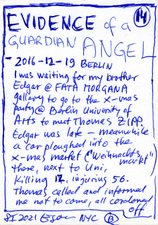 EVIDENCE of a
14
GUARDIAN ANGEL
- 2016-12-19 BERLIN
I was waiting for my brother
Edgar @ FATA MORGANA
gallery to go to the x-mas
party @ Berlin University of
Arts to mut Thomas ZIPP.
Edgar was late - meanwhile
a car ploughed into the
x-mas market ("Weihnachts
markt")
there, next to Uni,
Killing 12, injuring 56.
Thomas called and informed
me not to come, all cordoned
off
2021 NYC